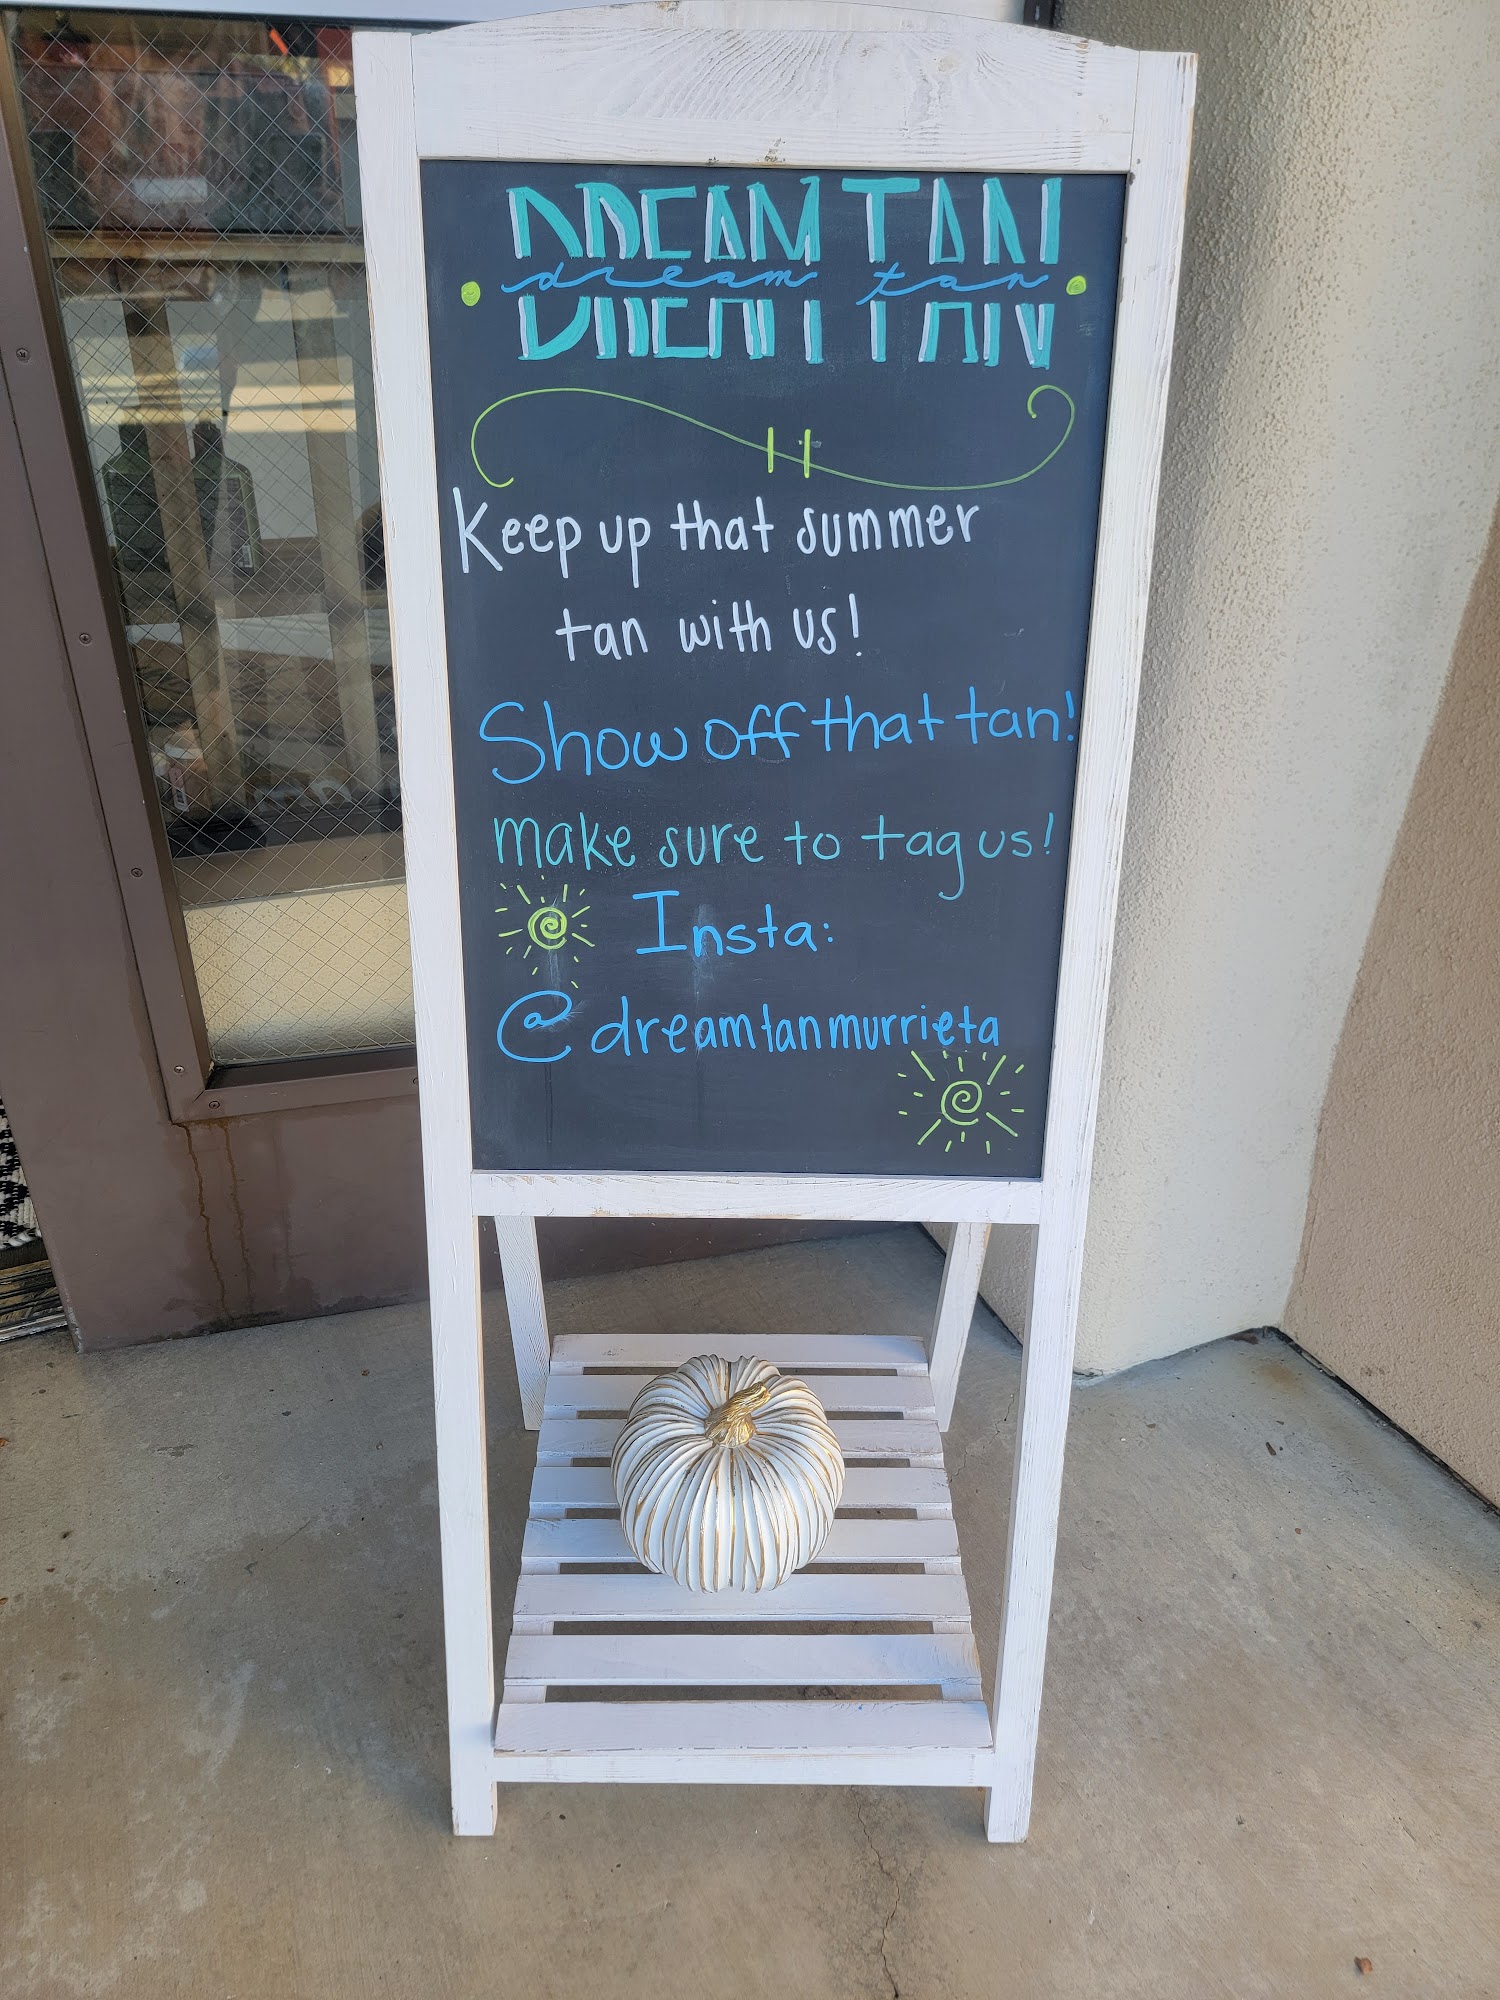 DREAM TAN
dream tan
Keep up that summer
tan with us!
Show off that tan!
make sure to tag us!
Insta:
@dreamtanmurrieta